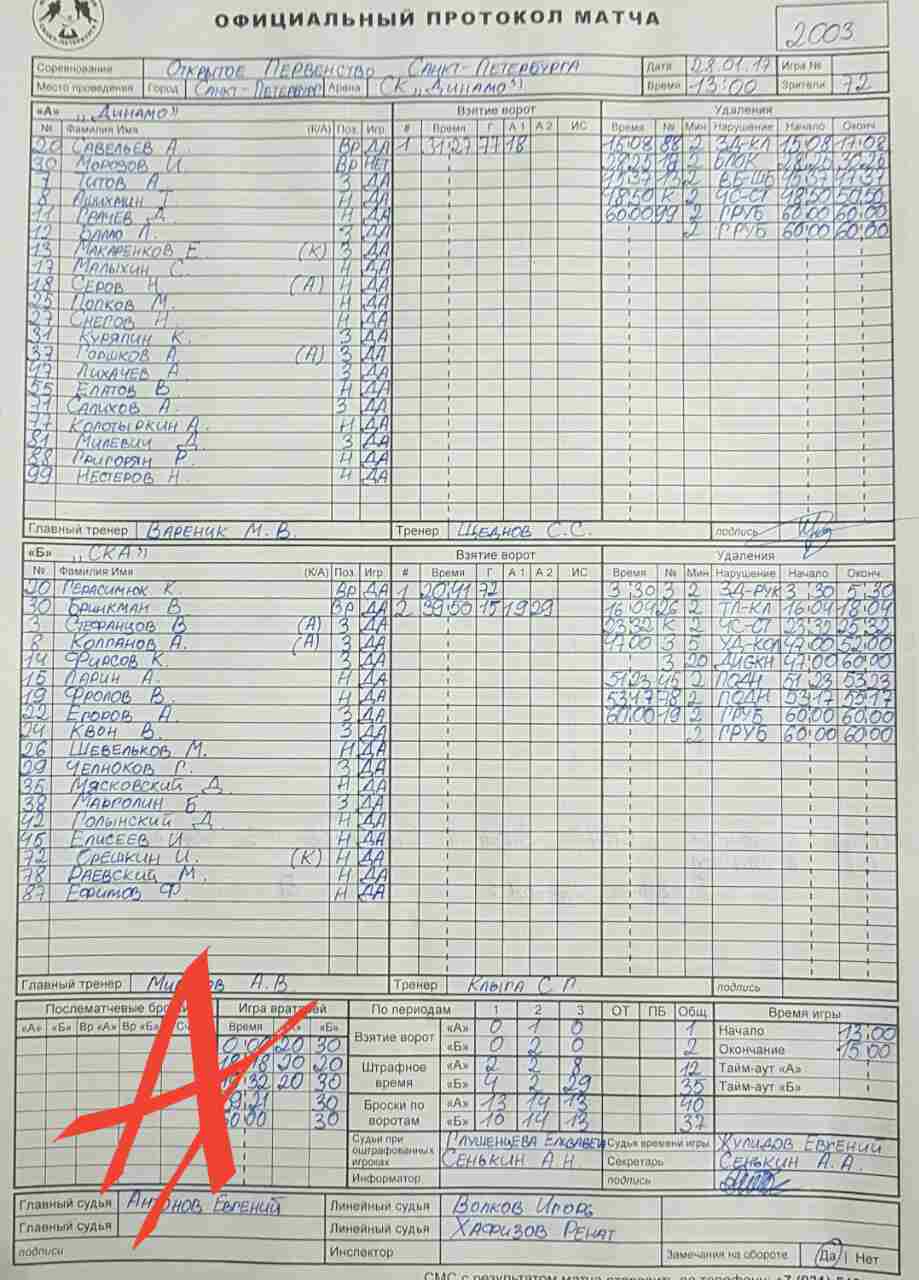 САНКТ-ПЕТЕРБУРГ
ОФИЦИАЛЬНЫЙ ПРОТОКОЛ МАТЧА
2003
Соревнование Открытое Первенство Санкт-Петербурга Дата 28.01.17 Игра №
Место проведения Город Санкт-Петербург Арена СК „Динамо” Время 13:00 Зрители 72
«А» „Динамо” Взятие ворот Удаления
№ Фамилия Имя (К/А) Поз. Игр. # Время Г А 1 А 2 ИС Время № Мин Нарушение Начало Оконч.
20 Савельев А. Вр ДА 1 31:27 77 18 15:08 88 2 ЗД-КЛ 15:08 17:08
30 Морозов И. Вр НЕТ 28:25 2 БЛОК 28:25 30:25
7 Титов А. З ДА 2 37
8 Ашихмин Т. Н ДА 48:50 К 2 ЧС-СТ 48:50 50:50
11 Грачев Д. Н ДА 60:00 99 2 ГРУБ 60:00 60:00
12 Балло Л. З ДА 2 ГРУБ 60:00 60:00
13 Макаренков Е. (К) З ДА
17 Малыхин С. Н ДА
18 Серов Н. (А) Н ДА
25 Попков М. Н ДА
27 Снегов Н. Н ДА
31 Куряпин К. З ДА
37 Горшков А. (А) З ДА
47 Лихачев А. З ДА
55 Елатов В Н ДА
71 Салихов А. З ДА
77 Колотыркин А. Н ДА
81 Милевич Д. З ДА
88 Григорян Р. Н ДА
99 Нестеров Н. Н ДА
Главный тренер Вареник М.В. Тренер Щеднов С.С. подпись
«Б» „СКА” Взятие ворот Удаления
№ Фамилия Имя (К/А) Поз. Игр. # Время Г А 1 А 2 ИС Время № Мин Нарушение Начало Оконч.
20 Герасимюк К. Вр ДА 1 20:41 72 3:30 3 2 ЗД-РУК 3:30 5:30
30 Бринкман В Вр ДА 2 39:50 15 19 29 16:09 26 2 ТЛ-КЛ 16:09 18:09
3 Стефанцов В (А) З ДА 23:32 К 2 ЧС-СТ 23:32 25:32
8 Колпанов А. (А) З ДА 47:00 3 5 УД-КОЛ 47:00 52:00
14 Фирсов К. З ДА 3 20 ДИСКН 47:00 60:00
15 Ларин А. Н ДА 51:23 45 2 ПОДН 51:23 53:23
19 Фролов В. Н ДА 53:17 78 2 ПОДН 53:17 55:17
22 Егоров А. З ДА 60:00 19 2 ГРУБ 60:00 60:00
24 Квон В. З ДА 2 ГРУБ 60:00 60:00
26 Шевельков М. Н ДА
29 Челноков Г. З ДА
35 Мясковский Д. Н ДА
38 Марголин Б. З ДА
42 Голынский Д. Н ДА
45 Елисеев И. Н ДА
72 Орешкин И. (К) Н ДА
78 Раевский М. Н ДА
87 Ефимов Ф. Н ДА
Главный тренер А.В. Тренер Клыга С.Г. подпись
Послематчевые Игра По периодам 1 2 3 ОТ ПБ Общ Время игры
«А» «Б» Вр «А» Вр «Б» Время «Б» Взятие ворот «А» 0 1 0 1 Начало 13:00
0:00 20 30 «Б» 0 2 0 2 Окончание 15:00
18:18 20 20 Штрафное время «А» 2 2 8 12 Тайм-аут «А»
19:32 20 30 «Б» 4 2 29 35 Тайм-аут «Б»
30 Броски по воротам «А» 13 14 13 40
30 «Б» 10 14 13 37
Судьи при оштрафованных игроках Глушенцева Елизавета Судья времени игры Жулидов Евгений
Сенькин А.Н. Секретарь Сенькин А.А.
Информатор подпись
Главный судья Антонов Евгений Линейный судья Волков Игорь
Главный судья Линейный судья Хафизов Ренат
подписи Инспектор Замечания на обороте Да | Нет
СМС с результатом матча отправить по телефону